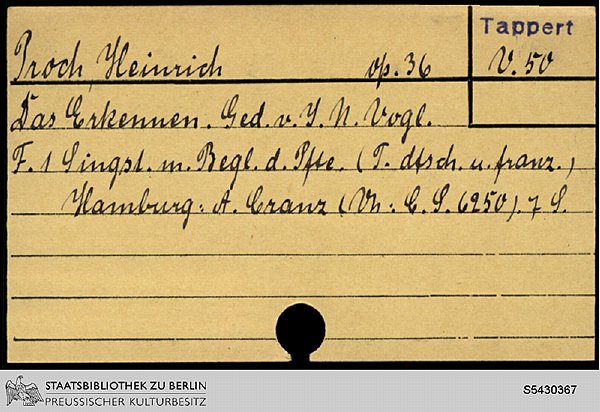 Proch, Heinrich op. 36
Tappert
V. 50
Das Erkennen. Ged. v. J. N. Vogl.
F. 1 Singst. m. Begl. d. Pfte. (T. dtsch. u. franz.)
Hamburg: A. Cranz (Vn: C. S. 6250). 7 S.
STAATSBIBLIOTHEK ZU BERLIN
PREUSSISCHER KULTURBESITZ
S5430367